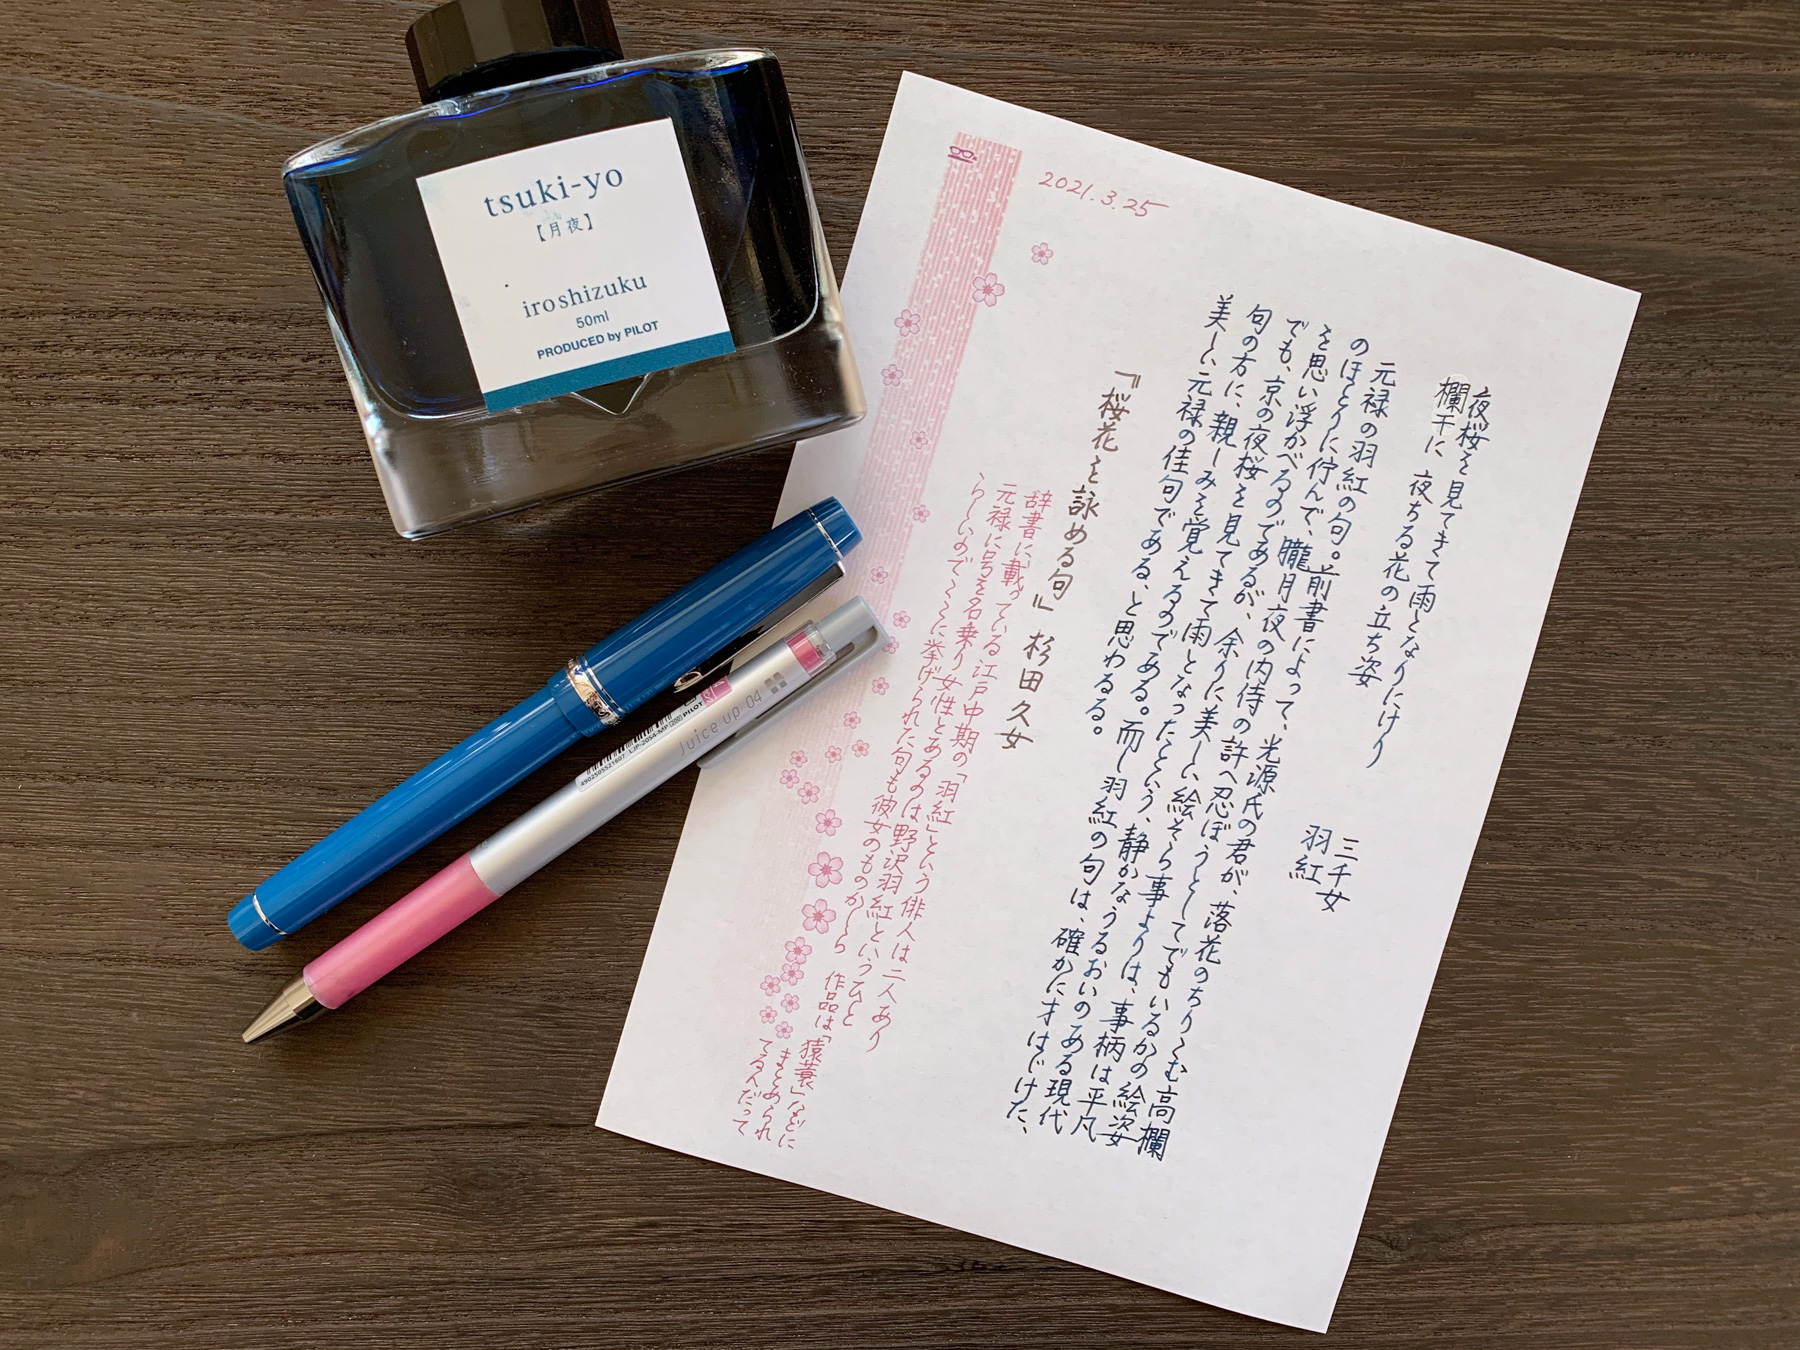 tsuki-yo
【月夜】
iroshizuku
50ml
PRODUCED by PILOT
Juice up 04
PILOT
LJP-20S4-MP
4902505521607
2021.3.25
夜桜を見てきて雨となりにけり
三千女
欄干に夜ちる花の立ち姿
羽紅
元禄の羽紅の句。前書によって、光源氏の君が、落花のちりこむ高欄
のほとりに佇んで、朧月夜の内侍の許へ忍ぼうとしてでもいるかの絵姿
を思い浮かべるのであるが、余りに美しい絵そら事よりは、事柄は平凡
でも、京の夜桜を見てきて雨となったという、静かなうるおいのある現代
句の方に、親しみを覚えるのである。而し羽紅の句は、確かに才はじけた、
美しい元禄の佳句である、と思わるる。
『桜花を詠める句』杉田久女
辞書に載っている江戸中期の「羽紅」という俳人は二人あり
元禄に号を名乗り女性とあるのは野沢羽紅というひと
作品は「猿蓑」などに
まとめられ
てる人だって
らしいのでここに挙げられた句も彼女のものかしら